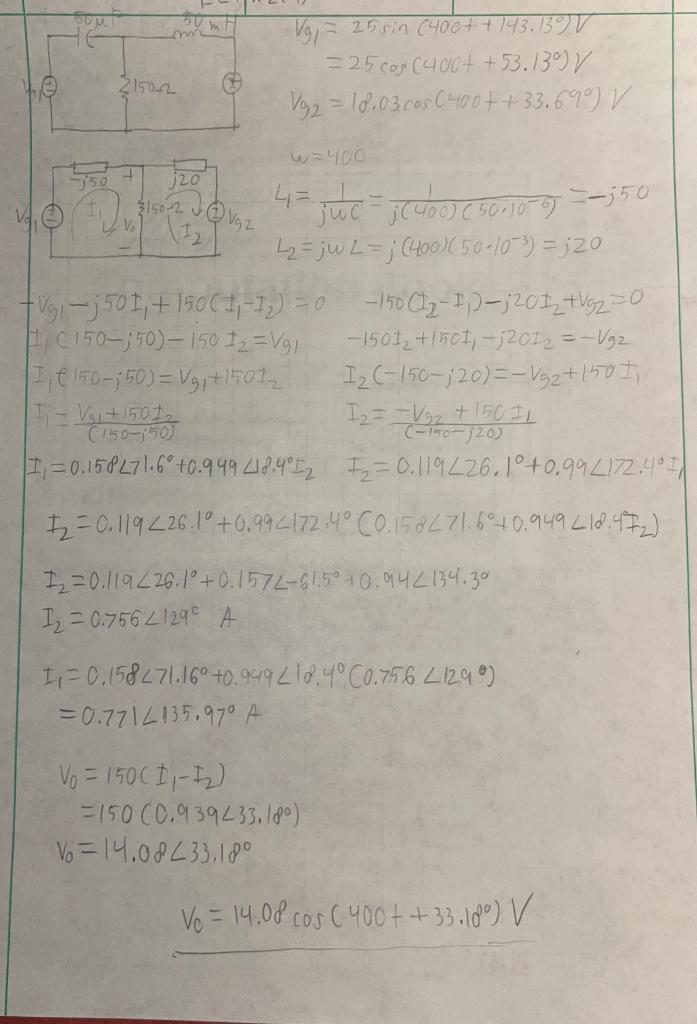 50μF 50mH
Vg1 150Ω
Vg1 = 25 sin (400t + 143.13°) V
= 25 cos (400t + 53.13°) V
Vg2 = 18.03 cos (400t + 33.69°) V
-j50 + j20
Vg1 I1 Vo 150Ω I2 Vg2
-
ω = 400
L1 = 1/jωC = 1/j(400)(50·10^-6) = -j50
L2 = jωL = j(400)(50·10^-3) = j20
-Vg1 - j50I1 + 150(I1-I2) = 0
-150(I2-I1) - j20I2 + Vg2 = 0
I1(150-j50) - 150I2 = Vg1
-150I2 + 150I1 - j20I2 = -Vg2
I1(150-j50) = Vg1 + 150I2
I2(-150-j20) = -Vg2 + 150I1
I1 = Vg1 + 150I2/(150-j50)
I2 = -Vg2 + 150I1/(-150-j20)
I1 = 0.158∠71.6° + 0.949∠18.4°I2
I2 = 0.119∠26.1° + 0.99∠172.4°I1
I2 = 0.119∠26.1° + 0.99∠172.4°(0.158∠71.6° + 0.949∠18.4°I2)
I2 = 0.119∠26.1° + 0.157∠-61.5° + 0.94∠134.3°
I2 = 0.756∠129° A
I1 = 0.158∠71.16° + 0.949∠18.4°(0.756∠129°)
= 0.771∠135.97° A
Vo = 150(I1-I2)
= 150(0.939∠33.18°)
Vo = 14.08∠33.18°
Vo = 14.08 cos (400t + 33.18°) V